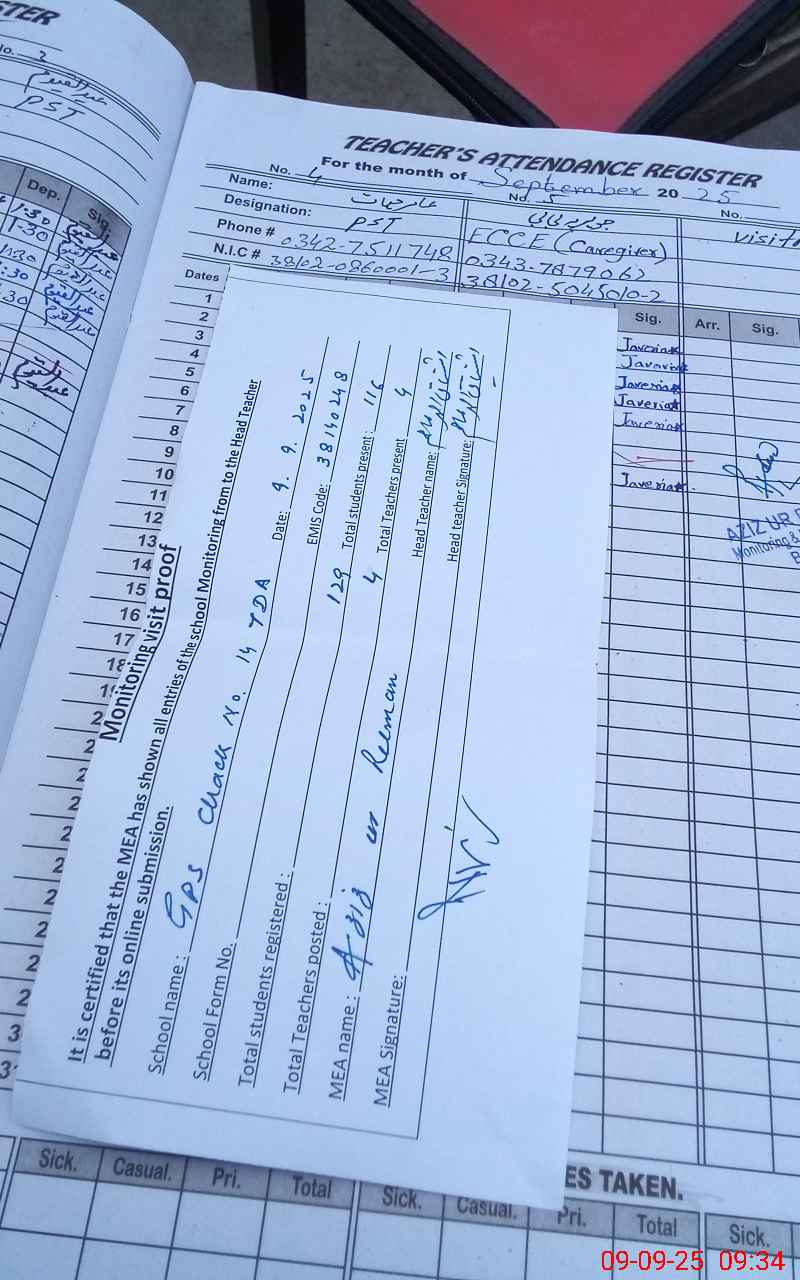 STER
No. 3
عبدالقیوم
PST
Dep.
Sig.
1:30
1-30
TEACHER'S ATTENDANCE REGISTER
For the month of September 2025
No. 4
No. 5
No.
Name:
Designation: PST
ECCE (Caregiver)
Phone # 0342-7511748
0343-7879062
N.I.C # 38102-0860001-3
38102-5045010-2
Dates
Sig.
Arr.
Sig.
1
2
3
4
5
6
7
8
9
10
11
12
13
14
15
16
17
18
Javeria
Javeria
Javeria
Javeria
Javeria
Javeria
AZIZ UR
Monitoring &
Monitoring visit proof
It is certified that the MEA has shown all entries of the school Monitoring from to the Head Teacher
before its online submission.
School name: GPS Chack No. 14 TDA Date: 9. 9. 2025
School Form No. EMIS Code: 38140248
Total students registered: 129 Total students present: 116
Total Teachers posted: 4 Total Teachers present 4
MEA name: Aziz ur Rehman Head Teacher name:
MEA Signature: Head teacher Signature:
ES TAKEN.
Sick. Casual. Pri. Total Sick. Casual. Pri. Total Sick.
09-09-25 09:34